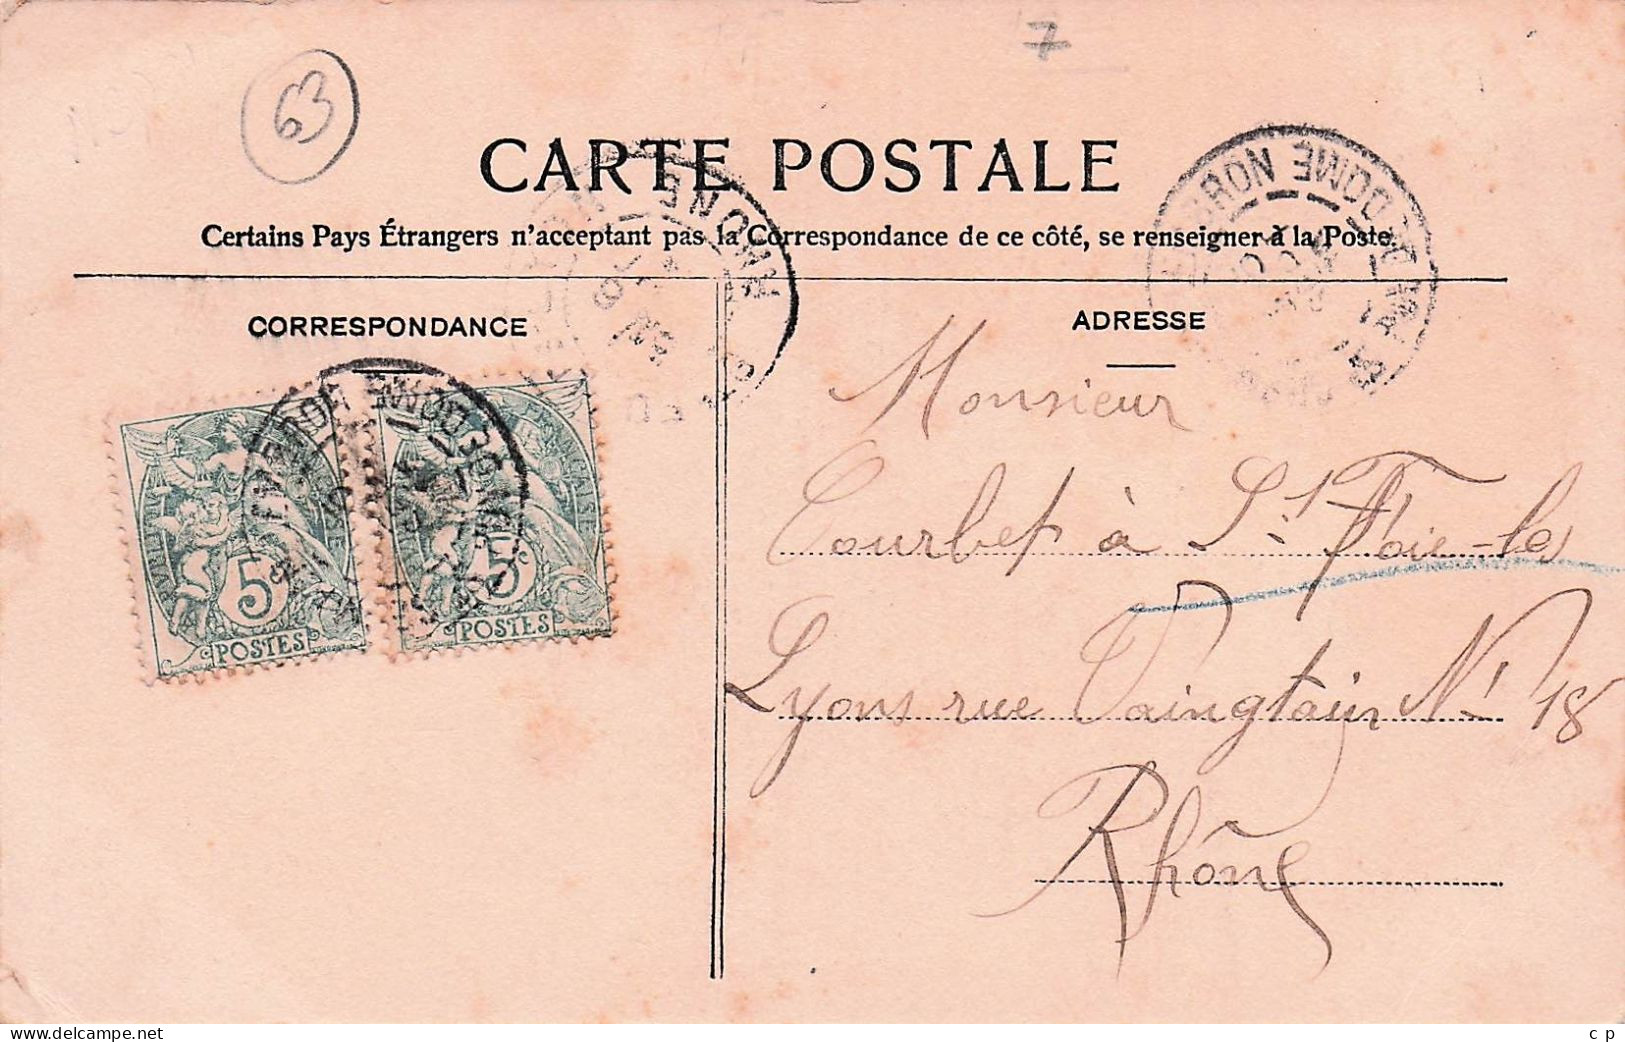 63
7
CARTE POSTALE
Certains Pays Étrangers n'acceptant pas la Correspondance de ce côté, se renseigner à la Poste.
CORRESPONDANCE
ADRESSE
Monsieur
Courbet à St. Foie-les
Lyons rue Vaingtain N' 18
Rhône
5c
POSTES
5c
POSTES
RHONE
DOME
DOME
www.delcampe.net
c p